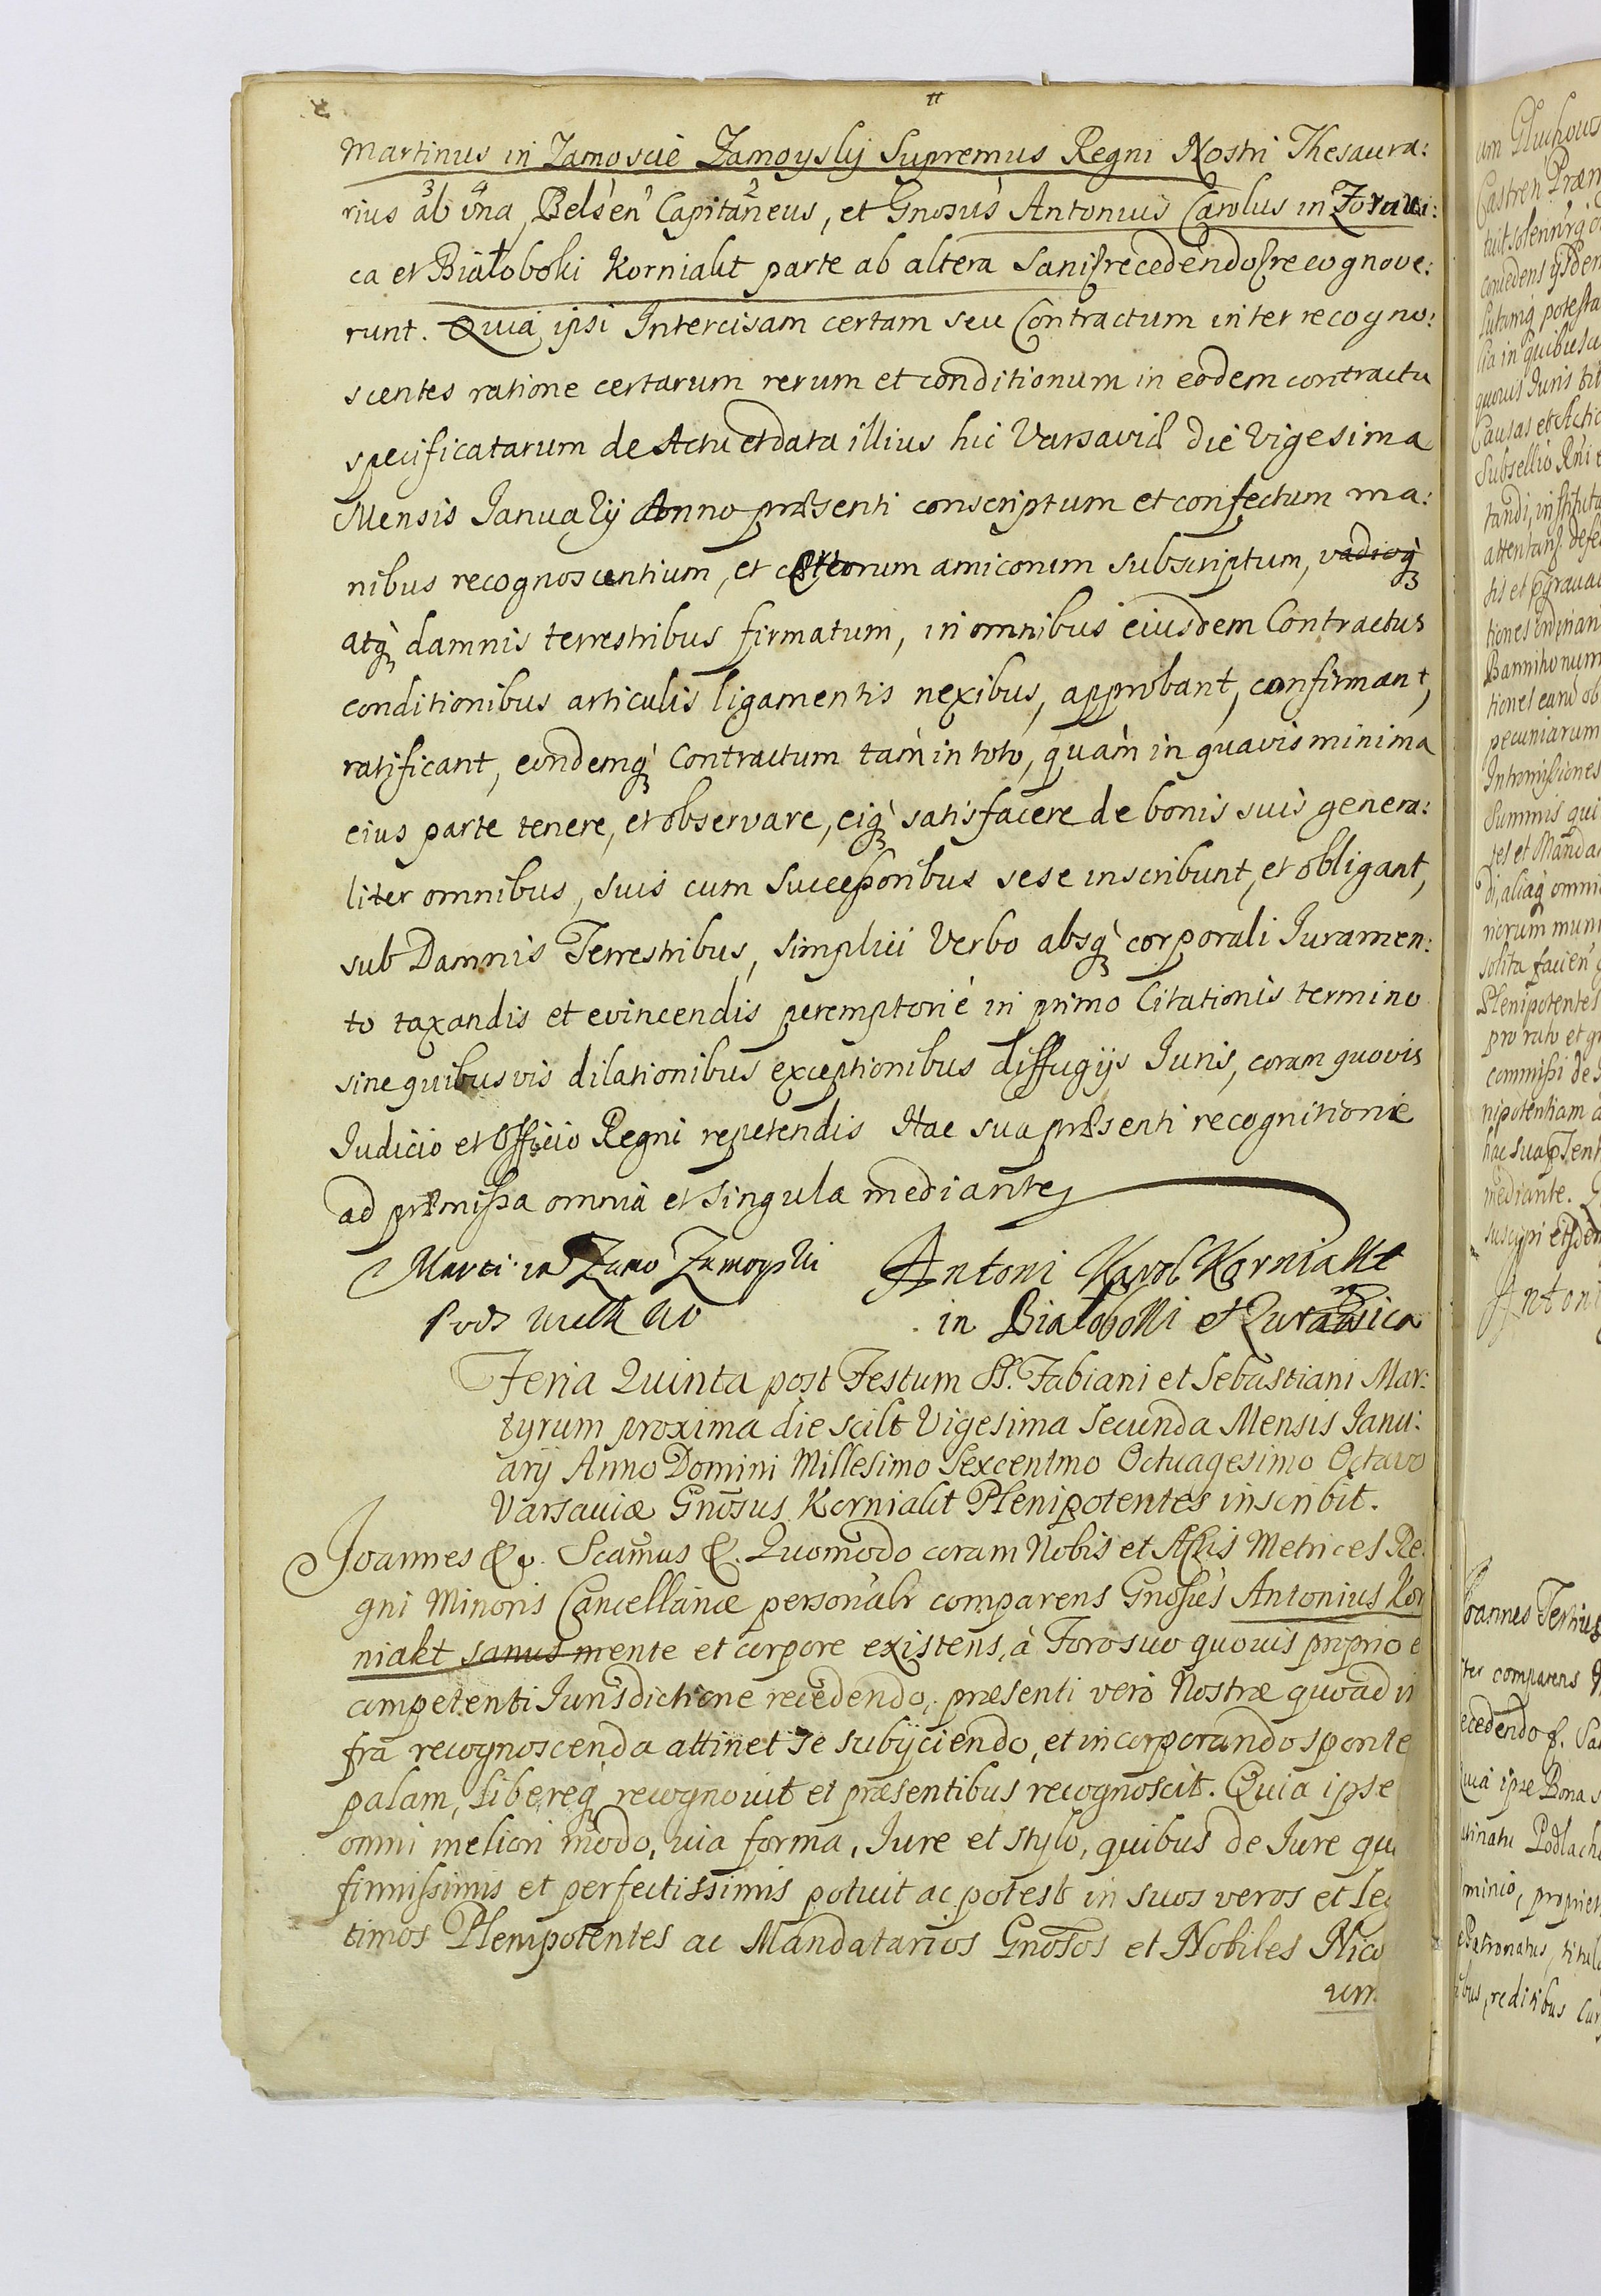 Martinus in Zamoscie Zamoyskij Supremus Regni Nostri Thesaura:
rius ab una, Belsen Capitaneus, et Gnosus Antonius Carolus in Zoraui:
ca et Białoboki Korniakt parte ab altera Sani & recedendo & recognove:
runt. Quia ipsi Intercisam certam seu Contractum inter recogno:
scentes ratione certarum rerum et conditionum in eodem contractu
specificatarum de Actu et data illius hic Varsaviæ die Vigesima
Mensis Januarij Anno præsenti conscriptum et confectum ma:
nibus recognoscentium, et certorum amicorum subscriptum, vadioq
atq damnis terrestribus firmatum, in omnibus eiusdem Contractus
conditionibus articulis ligamentis nexibus, approbant, confirmant,
ratificant, eundemq Contractum tam in toto, quàm in quavis minima
eius parte tenere, et observare, eiq satisfacere de bonis suis genera:
liter omnibus, suis cum Successoribus sese inscribunt, et obligant,
sub Damnis Terrestribus, simplici Verbo absq corporali Juramen:
to taxandis et evincendis peremptorie in primo Citationis termino
sine quibusvis dilationibus exceptionibus diffugijs Juris, coram quovis
Judicio et Officio Regni repetendis Hac sua præsenti recognitione
ad præmissa omnia et singula mediante
Marci in Zamo Zamoyski Antoni Karol Korniakt
Pods in Białoboki et Zurawica
Feria Quinta post Festum SS. Fabiani et Sebastiani Mar:
tyrum proxima die scilt Vigesima Secunda Mensis Janu:
arij Anno Domini Millesimo Sexcentmo Octuagesimo Octavo
Varsaviæ Gnosus Korniakt Plenipotentes inscribit.
Joannes &c. Scamus &. Quomodo coram Nobis et Actis Metrices Re
gni Minoris Cancellariæ personalr comparens Gnosus Antonius Kor
niakt sanus mente et corpore existens, à Foro suo quovis proprio e
competenti Jurisdictione recedendo, præsenti verò Nostræ quoad in
fra recognoscenda attinet Se subijciendo, et incorporando sponte
palam, libereq recognovit et præsentibus recognoscit. Quia ipse
omni meliori modo, via forma, Jure et stylo, quibus de Jure qu
firmissimis et perfectissimis potuit ac potest in suos veros et le
timos Plenipotentes ac Mandatarios Gnosos et Nobiles Nico
um